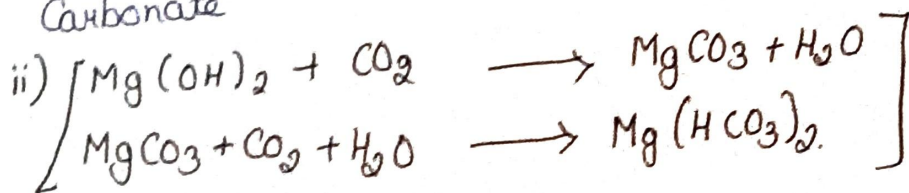 Carbonate
ii) [Mg(OH)₂ + CO₂ ⟶ MgCO₃ + H₂O]
MgCO₃ + CO₂ + H₂O ⟶ Mg(HCO₃)₂.